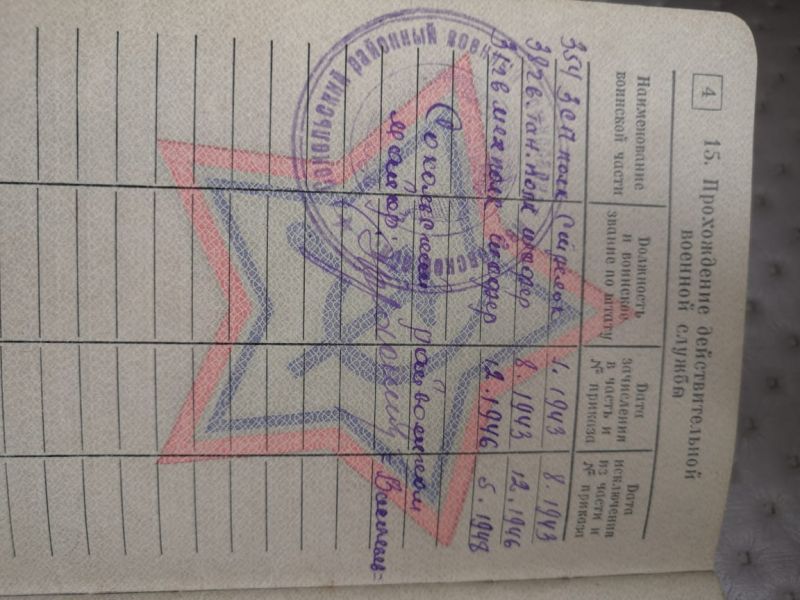 4
15. Прохождение действительной
военной службы
Наименование воинской части
Должность и воинское звание по штату
Дата зачисления в часть и № приказа
Дата исключения из части и № приказа
354 зсп полк Стрелок 1.1943 8.1943
38 гв. тан. шофер 8.1943 12.1946
мех полк шофер 12.1946 5.1948
Сокольский райвоенком
майор
районный военн